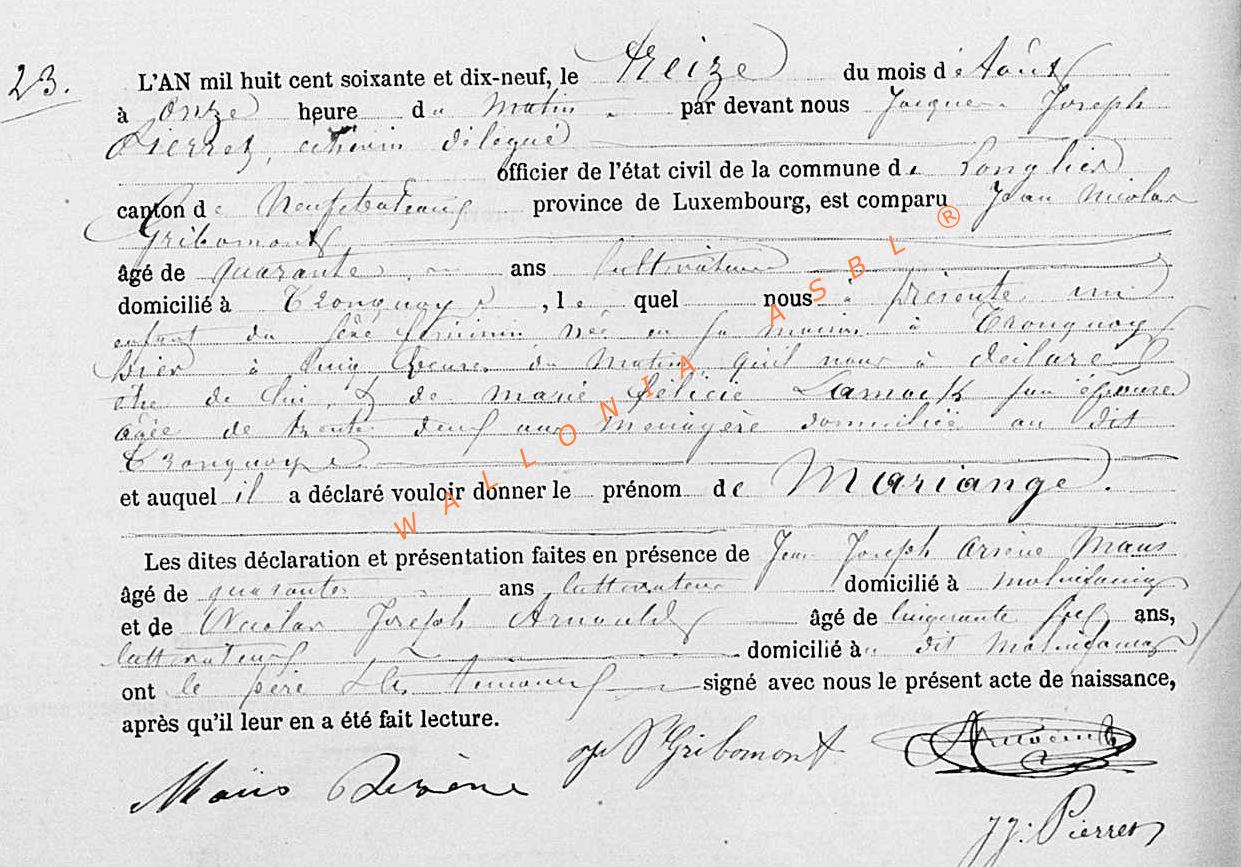 23.
L'AN mil huit cent soixante et dix-neuf, le treize du mois d'Août
à onze heure du Matin par devant nous Jacques Joseph
Pierret, échevin délégué
officier de l'état civil de la commune de Longlier
canton de Neufchateau province de Luxembourg, est comparu Jean Nicolas
Gribomont
âgé de quarante ans Cultivateur
domicilié à Tronquoy, lequel nous à présenté un
enfant du sexe féminin née en sa maison à Tronquoy
hier à cinq heures du Matin qu'il nous à déclaré
être de lui & de marie félicie Lamock son épouse
agée de trente deux ans ménagère domiciliée au dit
Tronquoy
et auquel il a déclaré vouloir donner le prénom de Mariange.
Les dites déclaration et présentation faites en présence de Jean Joseph Arsène Maus
âgé de quarante ans Cultivateur domicilié à molinfaing
et de Nicolas Joseph Arnould âgé de cinquante ans,
Cultivateur domicilié à dit Molinfaing
ont le père & les témoins signé avec nous le présent acte de naissance,
après qu'il leur en a été fait lecture.
Gribomont Arnould
Maus Arsène
JJ. Pierret
WALLONIA ASBL ®